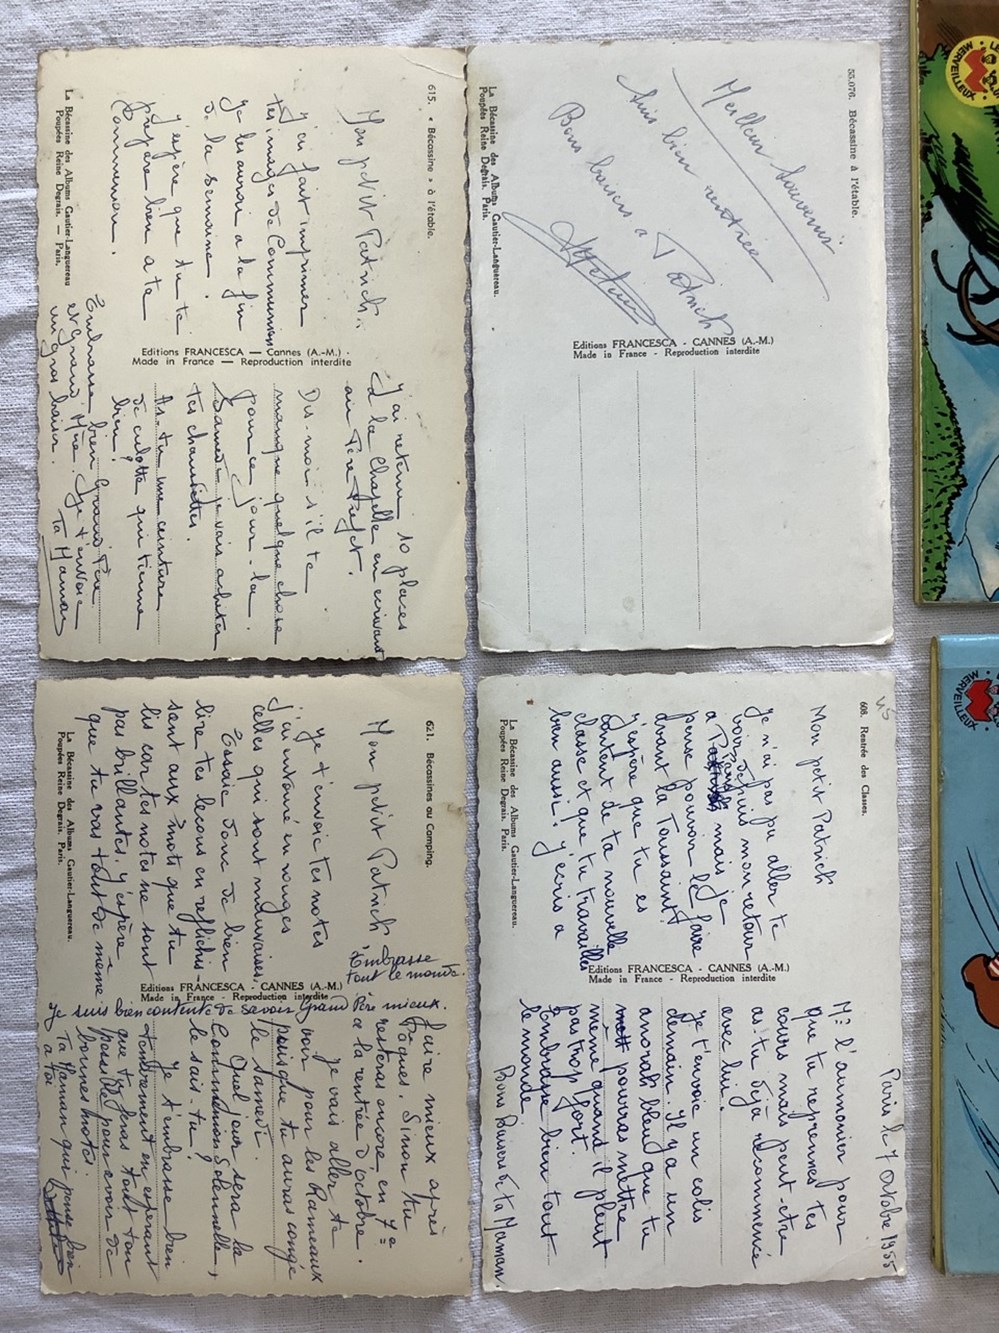 615. « Bécassine » à l'étable.
Mon petit Patrick,
J'ai fait imprimer
tes images de Communion
Je les aurai à la fin
de la semaine.
J'espère que tu te
prépare bien à ta
Communion.
La Bécassine des Albums Gautier-Languereau
Poupées Reine Degrais. — Paris.
Editions FRANCESCA — Cannes (A.-M.) -
Made in France — Reproduction interdite
J'ai retenu 10 places
à la Chapelle en écrivant
au Père Préfet.
Dis-moi s'il te
manque quelque chose
pour ce jour-là.
Samedi je vais acheter
tes chaussettes.
As-tu une ceinture
de culotte qui tienne
bien?
Embrasse bien Grand Père
et Grand Mère. Je t'envoie
un gros baiser.
Ta Maman
55.076. Bécassine à l'étable.
Meilleur Souvenir
Suis bien rentrée
Bons baisers à Patrick
La Bécassine des Albums Gautier-Languereau.
Poupées Reine Degrais. Paris.
Editions FRANCESCA - CANNES (A.-M.)
Made in France - Reproduction interdite
621. Bécassines au Camping.
Mon petit Patrick
Je t'envoie tes notes
j'ai entouré en rouges
celles qui sont mauvaises.
Essaie donc de bien
lire tes leçons en reflichis-
sant aux mots que tu
lis car tes notes ne sont
pas brillantes. J'espère
que tu vas tout de même
La Bécassine des Albums Gautier-Languereau.
Poupées Reine Degrais. Paris.
Editions FRANCESCA - CANNES (A.-M.)
Made in France - Reproduction interdite
Embrasse
tout le monde.
Je suis bien contente de savoir Grand Père mieux.
faire mieux après
Pâques. Sinon tu
resteras encore en 7e
à la rentrée d'octobre.
Je vais aller te
voir pour les Rameaux
puisque tu auras congé
le Samedi.
Quel jour sera la
Communion Solennelle,
le sais-tu?
Je t'embrasse bien
tendrement en espérant
que tu feras tout ton
possible pour avoir de
bonnes notes.
Ta Maman qui pense bien
à toi
45
608. Rentrée des Classes.
Mon petit Patrick
Je n'ai pas pu aller te
voir depuis mon retour
à Paris mais je
pense pouvoir le faire
avant la Toussaint.
J'espère que tu es
content de ta nouvelle
classe et que tu travailles
bien aussi. J'écris à
La Bécassine des Albums Gautier-Languereau.
Poupées Reine Degrais. Paris.
Editions FRANCESCA - CANNES (A.-M.)
Made in France - Reproduction interdite
Paris le 7 octobre 1955
Mr l'aumonier pour
que tu reprennes tes
cours mais peut-être
as-tu déjà recommencé
avec lui.
Je t'envoie un colis
demain. Il y a un
anorak bleu que tu
pourras mettre
même quand il pleut
pas trop fort.
Embrasse bien tout
le monde.
Bons Baisers de ta Maman.
MERVEILLEUX
MERVEILLEUX